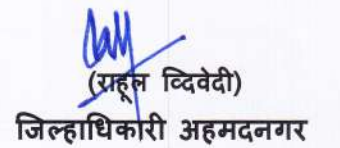 (राहूल व्दिवेदी)
जिल्हाधिकारी अहमदनगर